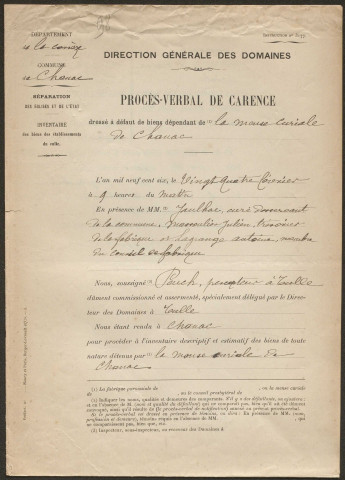 DÉPARTEMENT
de la Corrèze
COMMUNE
de Chanac
SÉPARATION
DES ÉGLISES ET DE L'ÉTAT
INVENTAIRE
des biens des établissements
de culte.
DIRECTION GÉNÉRALE DES DOMAINES
PROCÈS-VERBAL DE CARENCE
dressé à défaut de biens dépendant de (1) la mense curiale
de Chanac
L'an mil neuf cent six, le Vingt quatre février
à 9 heures du matin
En présence de MM. (2) curé desservant
de la commune, Julien, trésorier
de la fabrique et Lagrange Antoine, membre
du conseil de fabrique
Nous, soussigné (3) Pouch, percepteur à Tulle
dûment commissionné et assermenté, spécialement délégué par le Direc-
teur des Domaines à Tulle
Nous étant rendu à Chanac
pour procéder à l'inventaire descriptif et estimatif des biens de toute
nature détenus par (1) la mense curiale de
Chanac
(1) La fabrique paroissiale de ou le conseil presbytéral de , ou la mense curiale
de , etc.
(2) Indiquer les noms, qualités et domiciles des comparants.
(3) Inspecteur, sous-inspecteur, ou receveur des Domaines à